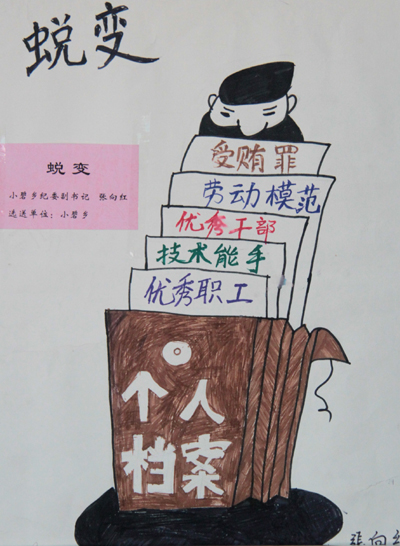 蜕变
蜕 变
小碧乡纪委副书记 张向红
选送单位：小碧乡
受贿罪
劳动模范
优秀干部
技术能手
优秀职工
个人
档案
张向